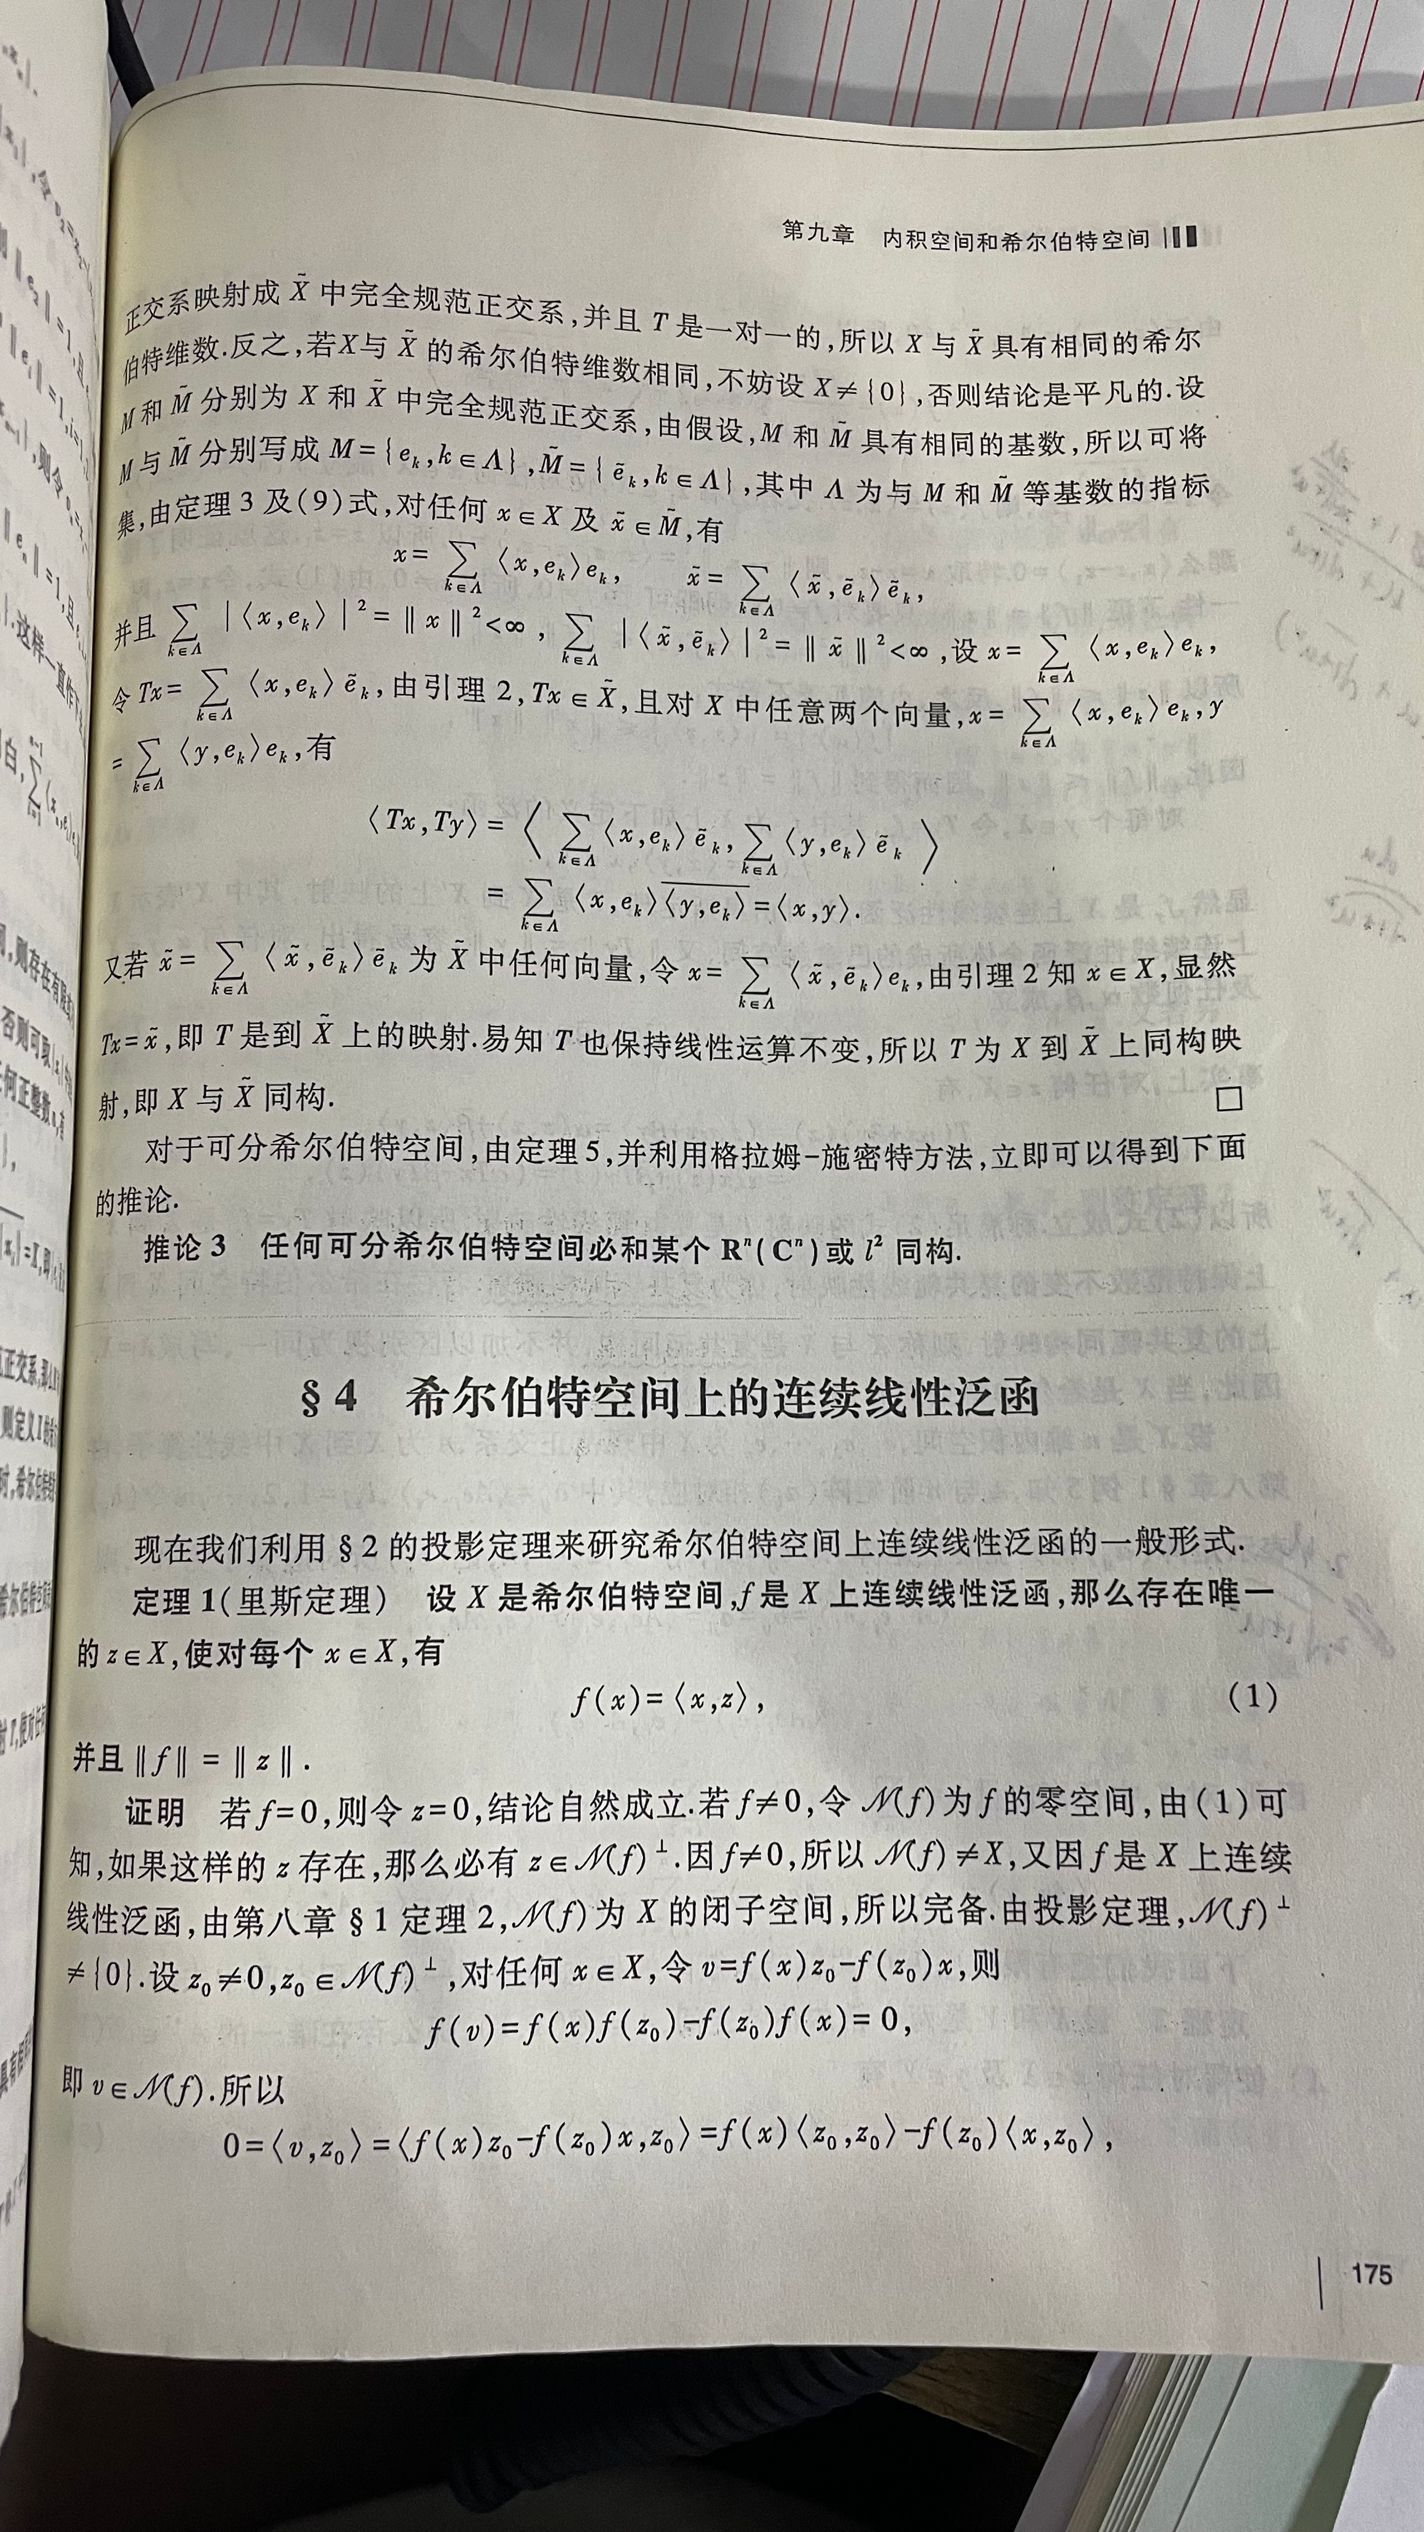 第九章 内积空间和希尔伯特空间
正交系映射成 X̃ 中完全规范正交系,并且 T 是一对一的,所以 X 与 X̃ 具有相同的希尔
伯特维数.反之,若X与 X̃ 的希尔伯特维数相同,不妨设 X≠{0},否则结论是平凡的.设
M 和 M̃ 分别为 X 和 X̃ 中完全规范正交系,由假设,M 和 M̃ 具有相同的基数,所以可将
M 与 M̃ 分别写成 M={eₖ,k∈Λ},M̃={ẽₖ,k∈Λ},其中 Λ 为与 M 和 M̃ 等基数的指标
集,由定理 3 及(9)式,对任何 x∈X 及 x̃∈M̃,有
x=∑_{k∈Λ}〈x,eₖ〉eₖ, x̃=∑_{k∈Λ}〈x̃,ẽₖ〉ẽₖ,
并且 ∑_{k∈Λ}|〈x,eₖ〉|²=‖x‖²<∞,∑_{k∈Λ}|〈x̃,ẽₖ〉|²=‖x̃‖²<∞,设 x=∑_{k∈Λ}〈x,eₖ〉eₖ,
令 Tx=∑_{k∈Λ}〈x,eₖ〉ẽₖ,由引理 2,Tx∈X̃,且对 X 中任意两个向量,x=∑_{k∈Λ}〈x,eₖ〉eₖ,y
=∑_{k∈Λ}〈y,eₖ〉eₖ,有
〈Tx,Ty〉=〈∑_{k∈Λ}〈x,eₖ〉ẽₖ,∑_{k∈Λ}〈y,eₖ〉ẽₖ〉
=∑_{k∈Λ}〈x,eₖ〉\overline{〈y,eₖ〉}=〈x,y〉.
又若 x̃=∑_{k∈Λ}〈x̃,ẽₖ〉ẽₖ 为 X̃ 中任何向量,令 x=∑_{k∈Λ}〈x̃,ẽₖ〉eₖ,由引理 2 知 x∈X,显然
Tx=x̃,即 T 是到 X̃ 上的映射.易知 T 也保持线性运算不变,所以 T 为 X 到 X̃ 上同构映
射,即 X 与 X̃ 同构. □
对于可分希尔伯特空间,由定理 5,并利用格拉姆-施密特方法,立即可以得到下面
的推论.
推论 3 任何可分希尔伯特空间必和某个 Rⁿ(Cⁿ)或 l² 同构.
§4 希尔伯特空间上的连续线性泛函
现在我们利用 §2 的投影定理来研究希尔伯特空间上连续线性泛函的一般形式.
定理 1(里斯定理) 设 X 是希尔伯特空间,f 是 X 上连续线性泛函,那么存在唯一
的 z∈X,使对每个 x∈X,有
f(x)=〈x,z〉, (1)
并且‖f‖=‖z‖.
证明 若 f=0,则令 z=0,结论自然成立.若 f≠0,令 𝒩(f)为 f 的零空间,由(1)可
知,如果这样的 z 存在,那么必有 z∈𝒩(f)⊥.因 f≠0,所以 𝒩(f)≠X,又因 f 是 X 上连续
线性泛函,由第八章 §1 定理 2,𝒩(f)为 X 的闭子空间,所以完备.由投影定理,𝒩(f)⊥
≠{0}.设 z₀≠0,z₀∈𝒩(f)⊥,对任何 x∈X,令 v=f(x)z₀-f(z₀)x,则
f(v)=f(x)f(z₀)-f(z₀)f(x)=0,
即 v∈𝒩(f).所以
0=〈v,z₀〉=〈f(x)z₀-f(z₀)x,z₀〉=f(x)〈z₀,z₀〉-f(z₀)〈x,z₀〉,
175